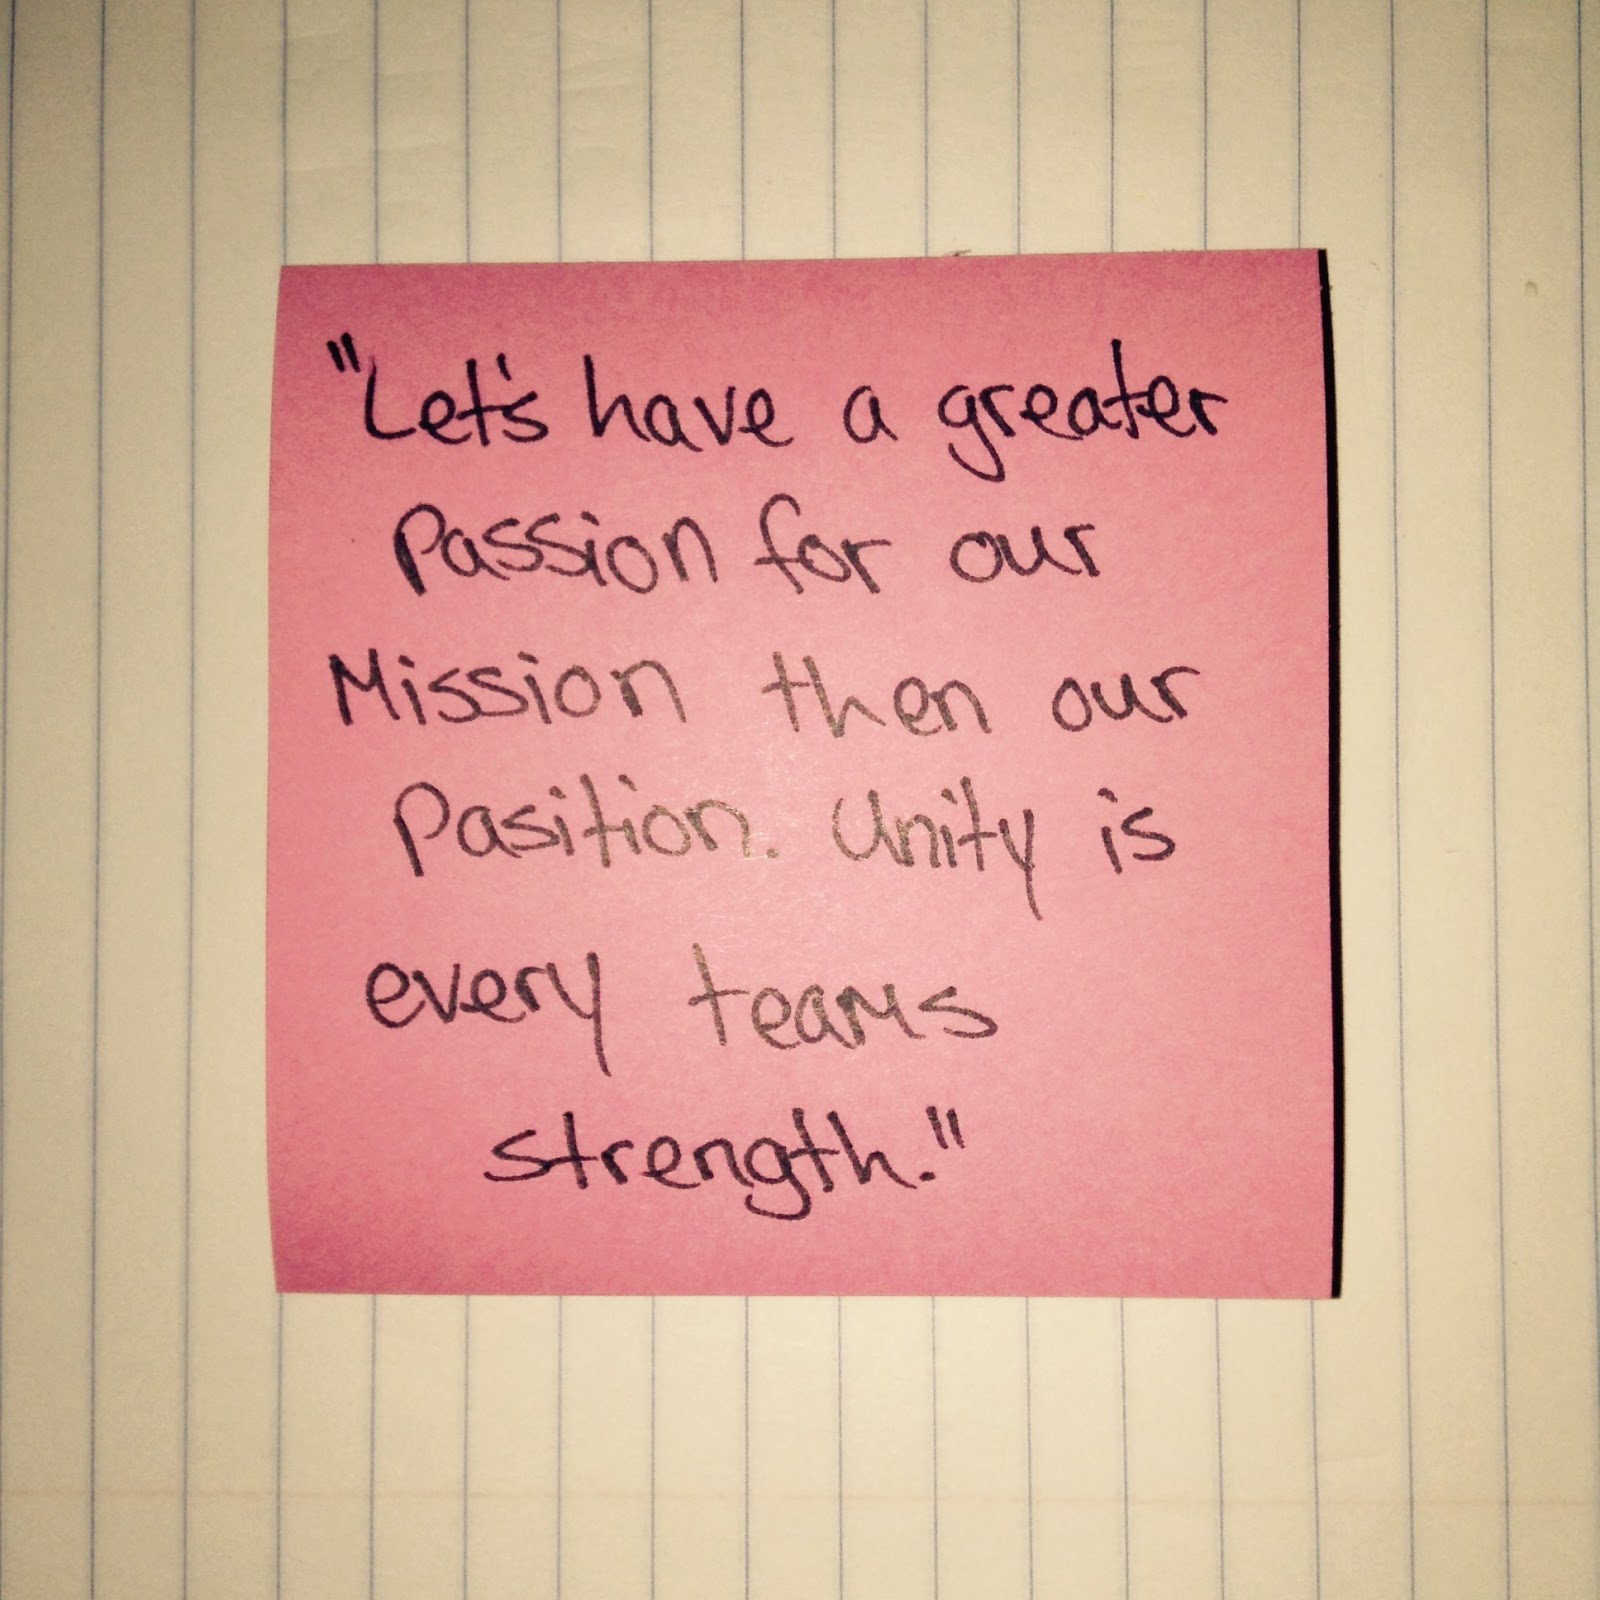 "Let's have a greater
Passion for our
Mission then our
Pasition. Unity is
every teams
strength."